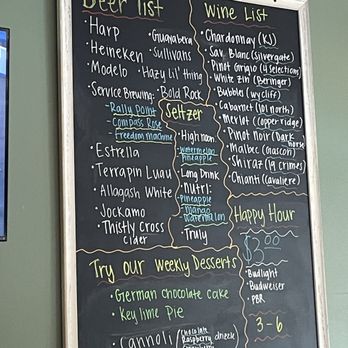 Beer list
· Harp
· Heineken
· Modelo
· Guayabera
· Sullivans
· Hazy lil' thing
· Service Brewing:
· Bold Rock
- Rally Point
- Compass Rose
- Freedom machine
· Estrella
· Terrapin Luau
· Allagash White
· Jockamo
· Thistly Cross
cider
Seltzer
· High noon
- watermelon
pineapple
· Long Drink
· Nutri:
- Pineapple
- mango
- watermelon
· Truly
Wine List
· Chardonnay (KJ)
· Sav Blanc (silvergate)
· Pinot Grigio (4 selections)
· White Zin (Beringer)
· Bubbly (wycliff)
· Cabernet (101 north)
· Merlot (copper ridge)
· Pinot Noir (Dark
horse)
· Malbec (gascon)
· Shiraz (19 crimes)
· Chianti (cavaliere)
Happy Hour
$3.00
· Budlight
· Budweiser
· PBR
3 - 6
Try our Weekly Desserts
· German chocolate cake
· Key lime Pie
· Cannoli
Chocolate
Raspberry